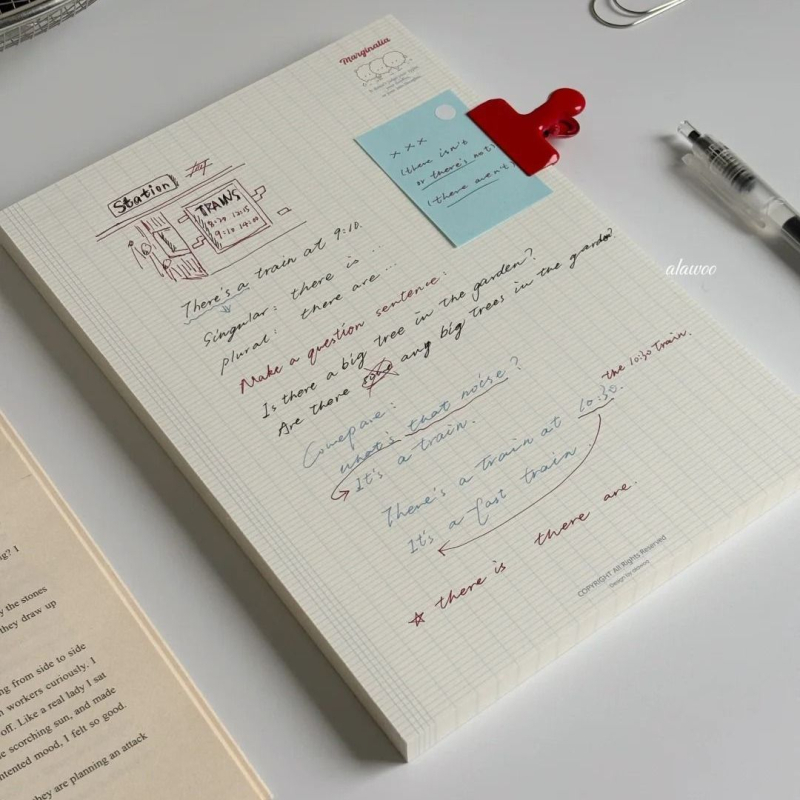 Marginalia
× × ×
(there isn't
or there's not)
(there aren't)
Station
TRAINS
8:30 12:15
9:10 14:00
There's a train at 9:10.
Singular: there is ...
plural: there are ...
Make a question sentence:
Is there a big tree in the garden?
Are there some any big trees in the garden?
Compare:
what's that noise?
It's a train.
the 10:30 train.
There's a train at 10:30.
It's a fast train.
☆ there is there are.
COPYRIGHT All Rights Reserved
Design by alawoo
alawoo
ng? I
y the stones
they draw up
ng from side to side
n workers curiously. I
off. Like a real lady I sat
e scorching sun, and made
ntented mood, I felt so good.
hey are planning an attack